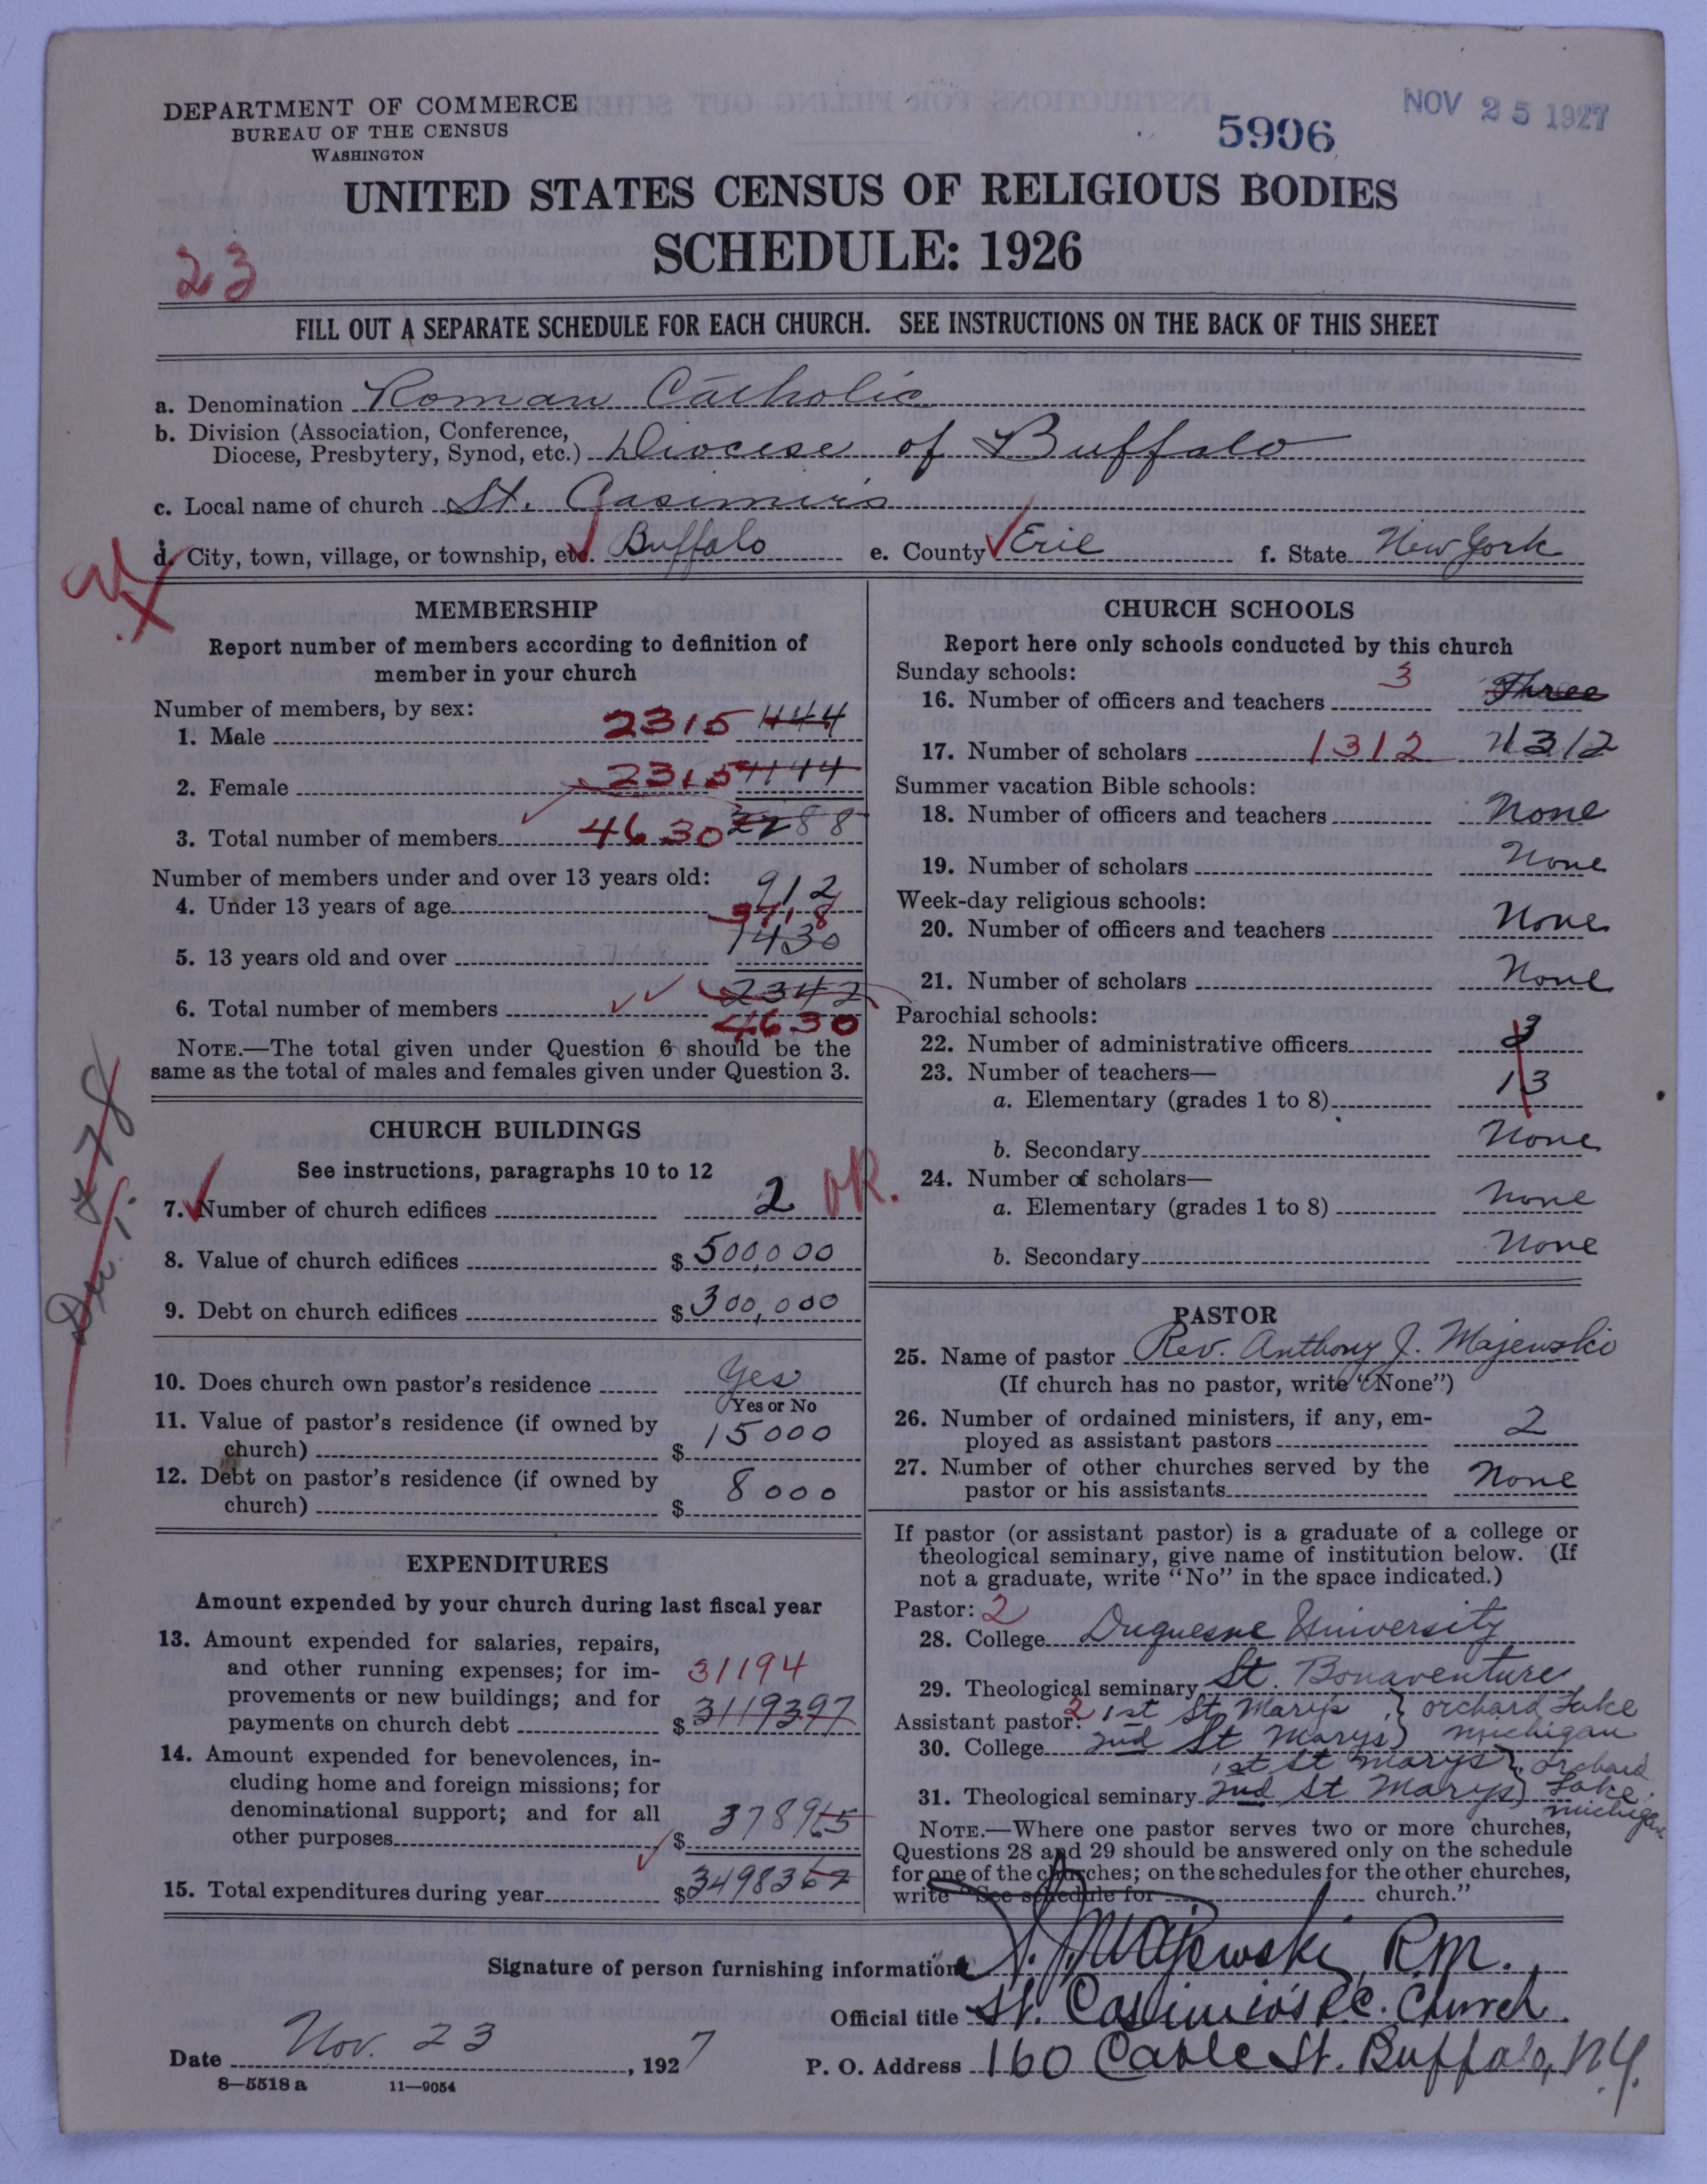 DEPARTMENT OF COMMERCE
BUREAU OF THE CENSUS
WASHINGTON
5906
NOV 25 1927
UNITED STATES CENSUS OF RELIGIOUS BODIES
SCHEDULE: 1926
23
FILL OUT A SEPARATE SCHEDULE FOR EACH CHURCH. SEE INSTRUCTIONS ON THE BACK OF THIS SHEET
a. Denomination Roman Catholic
b. Division (Association, Conference,
Diocese, Presbytery, Synod, etc.) Diocese of Buffalo
c. Local name of church St. Casimir's
d. City, town, village, or township, etc. Buffalo e. County Erie f. State New York
MEMBERSHIP
Report number of members according to definition of
member in your church
Number of members, by sex:
1. Male 2315 444
2. Female 2315 1144
3. Total number of members 4630 2288
Number of members under and over 13 years old:
4. Under 13 years of age 912
3718
5. 13 years old and over 1430
6. Total number of members 2342
4630
NOTE.—The total given under Question 6 should be the
same as the total of males and females given under Question 3.
CHURCH BUILDINGS
See instructions, paragraphs 10 to 12
7. Number of church edifices 2 OK.
8. Value of church edifices $ 500,000
9. Debt on church edifices $ 300,000
10. Does church own pastor's residence Yes
Yes or No
11. Value of pastor's residence (if owned by
church) $ 15000
12. Debt on pastor's residence (if owned by
church) $ 8000
EXPENDITURES
Amount expended by your church during last fiscal year
13. Amount expended for salaries, repairs,
and other running expenses; for im- 31194
provements or new buildings; and for
payments on church debt $ 3119397
14. Amount expended for benevolences, in-
cluding home and foreign missions; for
denominational support; and for all
other purposes $ 378965
15. Total expenditures during year $ 3498362
CHURCH SCHOOLS
Report here only schools conducted by this church
Sunday schools:
16. Number of officers and teachers 3 Three
17. Number of scholars 1312 1312
Summer vacation Bible schools:
18. Number of officers and teachers None
19. Number of scholars None
Week-day religious schools:
20. Number of officers and teachers None
21. Number of scholars None
Parochial schools:
22. Number of administrative officers 3
23. Number of teachers—
a. Elementary (grades 1 to 8) 13
b. Secondary None
24. Number of scholars—
a. Elementary (grades 1 to 8) None
b. Secondary None
PASTOR
25. Name of pastor Rev. Anthony J. Majewski
(If church has no pastor, write "None")
26. Number of ordained ministers, if any, em-
ployed as assistant pastors 2
27. Number of other churches served by the
pastor or his assistants None
If pastor (or assistant pastor) is a graduate of a college or
theological seminary, give name of institution below. (If
not a graduate, write "No" in the space indicated.)
Pastor: 2
28. College Duquesne University
29. Theological seminary St. Bonaventure
Assistant pastor: 2 1st St Marys } orchard Lake
30. College 2nd St Marys } michigan
1st St marys } orchard
31. Theological seminary 2nd St Marys } Lake
michigan
NOTE.—Where one pastor serves two or more churches,
Questions 28 and 29 should be answered only on the schedule
for one of the churches; on the schedules for the other churches,
write "See schedule for church."
Signature of person furnishing information A. J. Majewski, R.M.
Official title St. Casimir's R.C. Church
Date Nov. 23, 1927 P. O. Address 160 Cable St. Buffalo, N.Y.
8—5518 a 11—9054